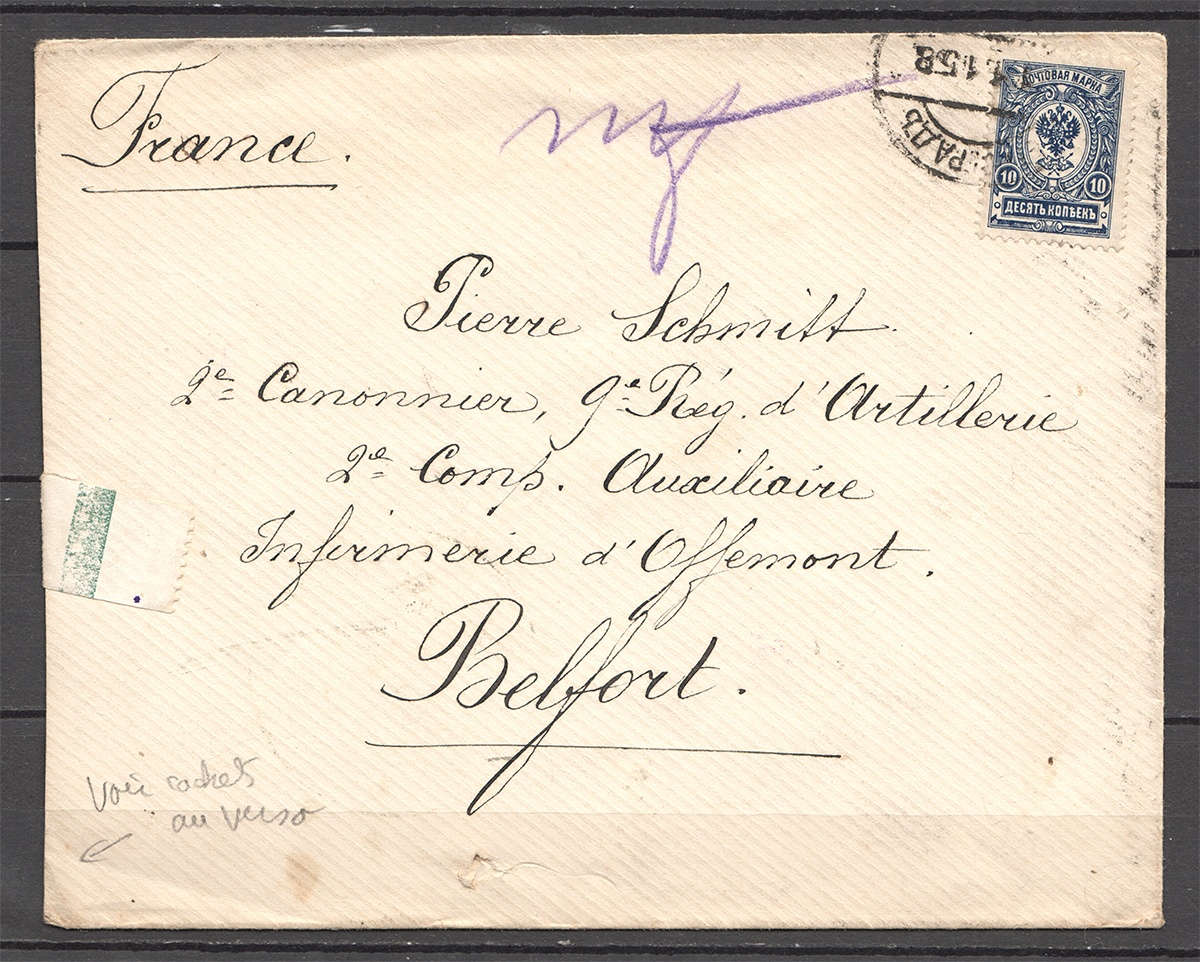 France.
ПОЧТОВАЯ МАРКА
10 10
ДЕСЯТЬ КОПѢЕКЪ
Pierre Schmitt
2e Canonnier, 9e Rég. d'Artillerie
2e Comp. Auxiliaire
Infirmerie d'Offemont.
Belfort.
Voir cachets
au verso